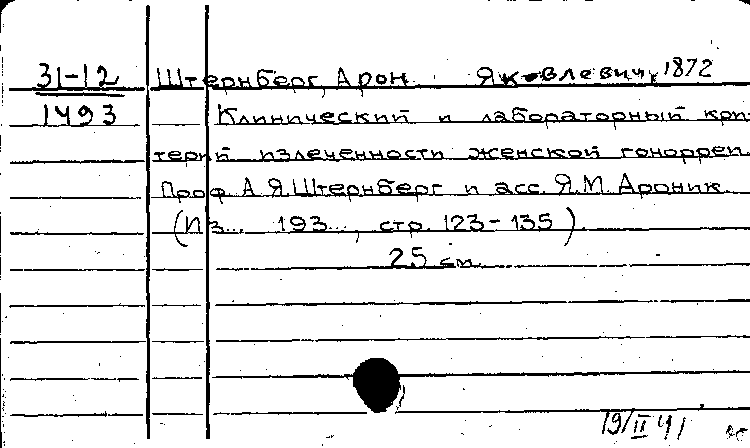 31-12 Штернберг, Арон Яковлевич, 1872
1493 Клинический и лабораторный кри-
терий излеченности женской гонорреи.
Проф. А.Я. Штернберг и асс. Я.М. Ароник.
(Из... 193..., стр. 123-135).
25 см.
19/II 41